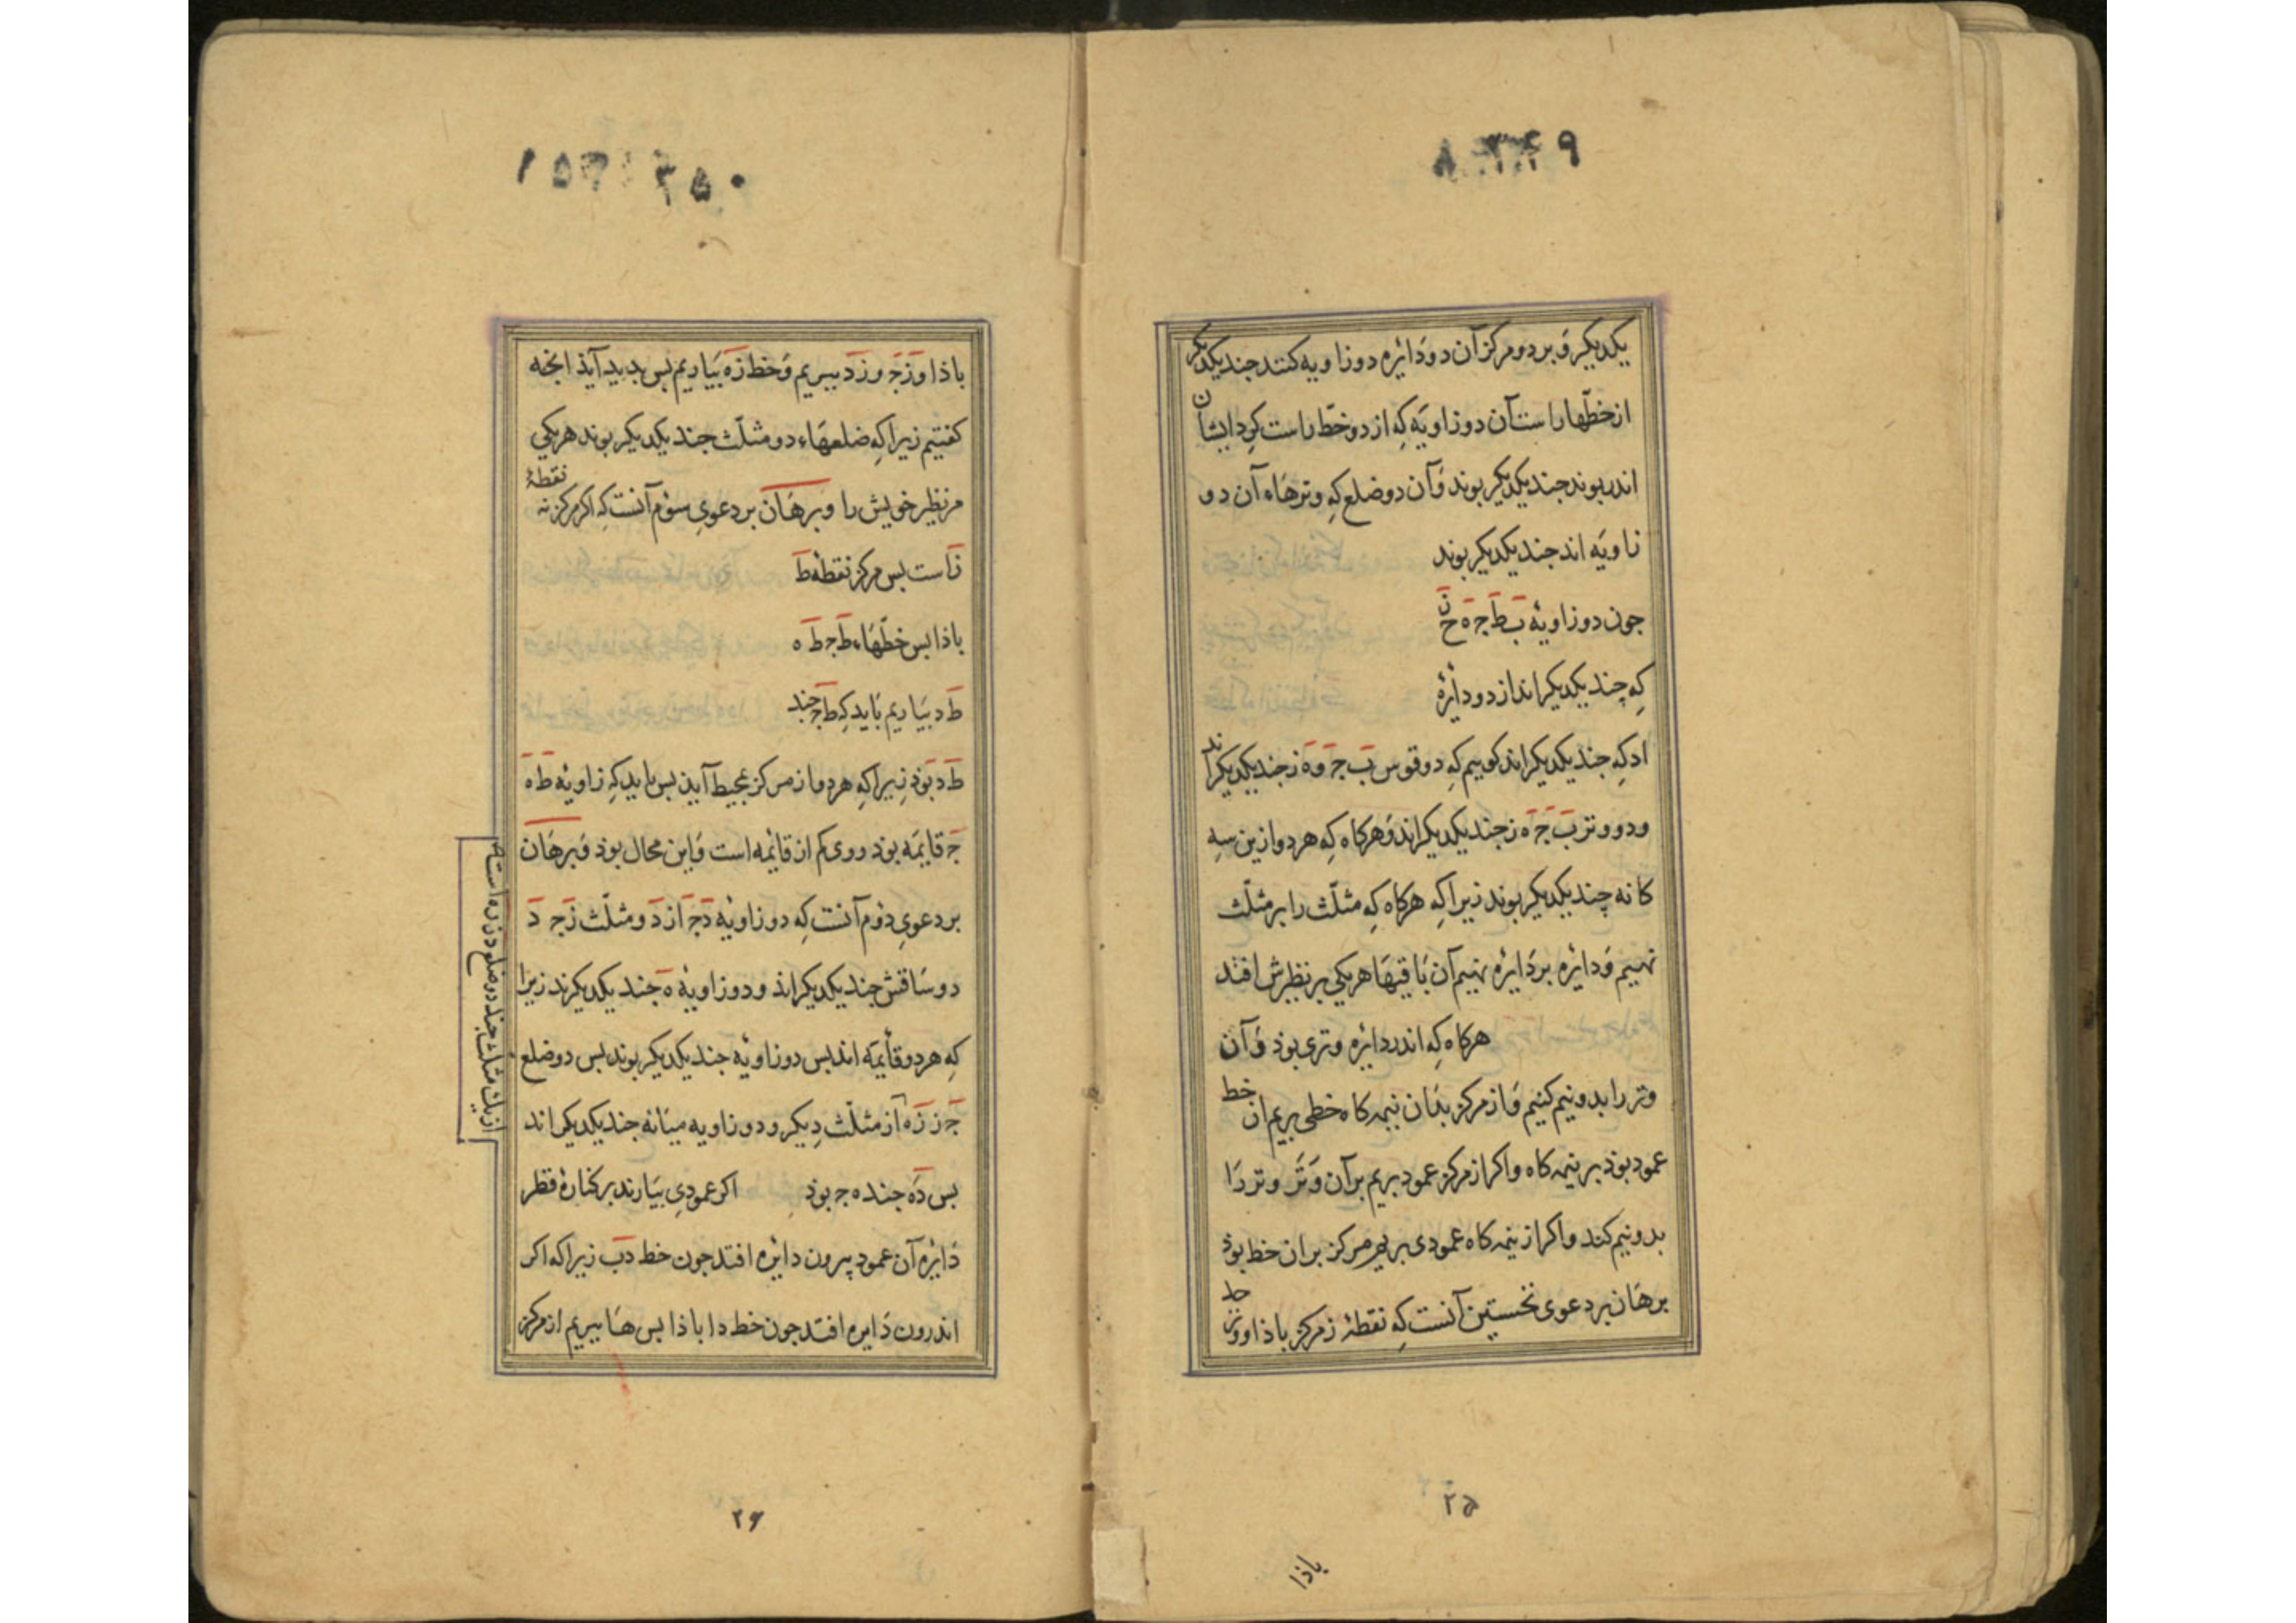 یکدیگر و بر دو مرکز آن دو دَائره دو زاویه کنند جند یکدیگر
از خطّها راست آن دو زاویَه کِه از دو خطّ راست کِرد ایشان
اندر بوند جند یکدیگر بوند وَ آن دو ضلع کِه وترهَاء آن دو
زاویَه اند جند یکدیگر بوند
جون دو زاویهٔ ب ط جـ ه ح ز
کِه چند یکدیگر اند از دو دایرهٔ
اد کِه جند یکدیگر اند کوییم کِه دو قوس ب جـ و ه ز جند یکدیگر اند
و دو وتر ب جـ ه ز جند یکدیگر اند وَ هرکاه کِه هر دو ازین سِه
کانه چند یکدیگر بوند زیرا کِه هرکاه کِه مثلّث را بر مثلّث
نهیم وَ دایره بر دَایره نهیم آن بَاقیهَا هر یکی بر نظیرش افتد
هرکاه کِه اندر دایره وتری بوذ وَ آن
وتر را بدو نیم کنیم وَ از مرکز بذَان نیمه کاه خطی بریم ان خط
عمود بوذ بر نیمه کاه و اکر از مرکز عمود بریم بر آن وَتَر وتر رَا
بدو نیم کند و اکر از نیمه کاه عمودی بریم مرکز بران خط بوذ
برهَان بر دعوی نخستین آنست کِه نقطهٔ ز مرکز باذا و وتر جد
۳۴۹
۲۵
باذا
۳۵۰
باذا و زَجـ و زَدَ ببریم وَ خط زَه بیَاریم بس بدید آیذ انجه
کفتیم زیرا کِه ضلعهَاء دو مثلّث جند یکدیکر بوند هر یکی
مر نظیر خویش را و برهَان بر دعویِ سوُم آنست کِه اکر مرکز نه نقطهٔ
زَ است بس مرکز نقطهٔ ط
باذا بس خطّهَاء ط جـ ط ه
ط د بیَاریم بَاید کِه ط جـ جند
ط د بَوذ زیرا کِه هر دو از مرکز بمحیط آیند بس باید کِه زاویهٔ ط ه
جـ قایمَه بوذ و وی کم از قائمه است وَ این محال بوذ وَ برهَان
بر دعویِ دوُم آنست کِه دو زاویهٔ دَ جـَ از دَو مثلّث زَ جـ دَ
دو سَاقش جند یکدیکر اند و دو زاویهٔ ه جند یکدیکرند زیرا
کِه هر دو قأیمَه اند بس دو زاویَه جند یکدیکر بوند بس دو ضلع
جـ ز زَه از مثلّث دِیکر و دو زاویه میَانه جند یکدیکر اند
بس دَه جند ه جـ بوذ اکر عمودیِ بیَارند بر کنارهٔ قطر
دَایره آن عمود بیرون دایره افتد جون خط دب زیرا که اکر
اندرون دَایره افتد جون خط دا باذا بس هَا ببریم از مرکز
از یک مثلث جند دو ضلع دز زه است از
۲۶